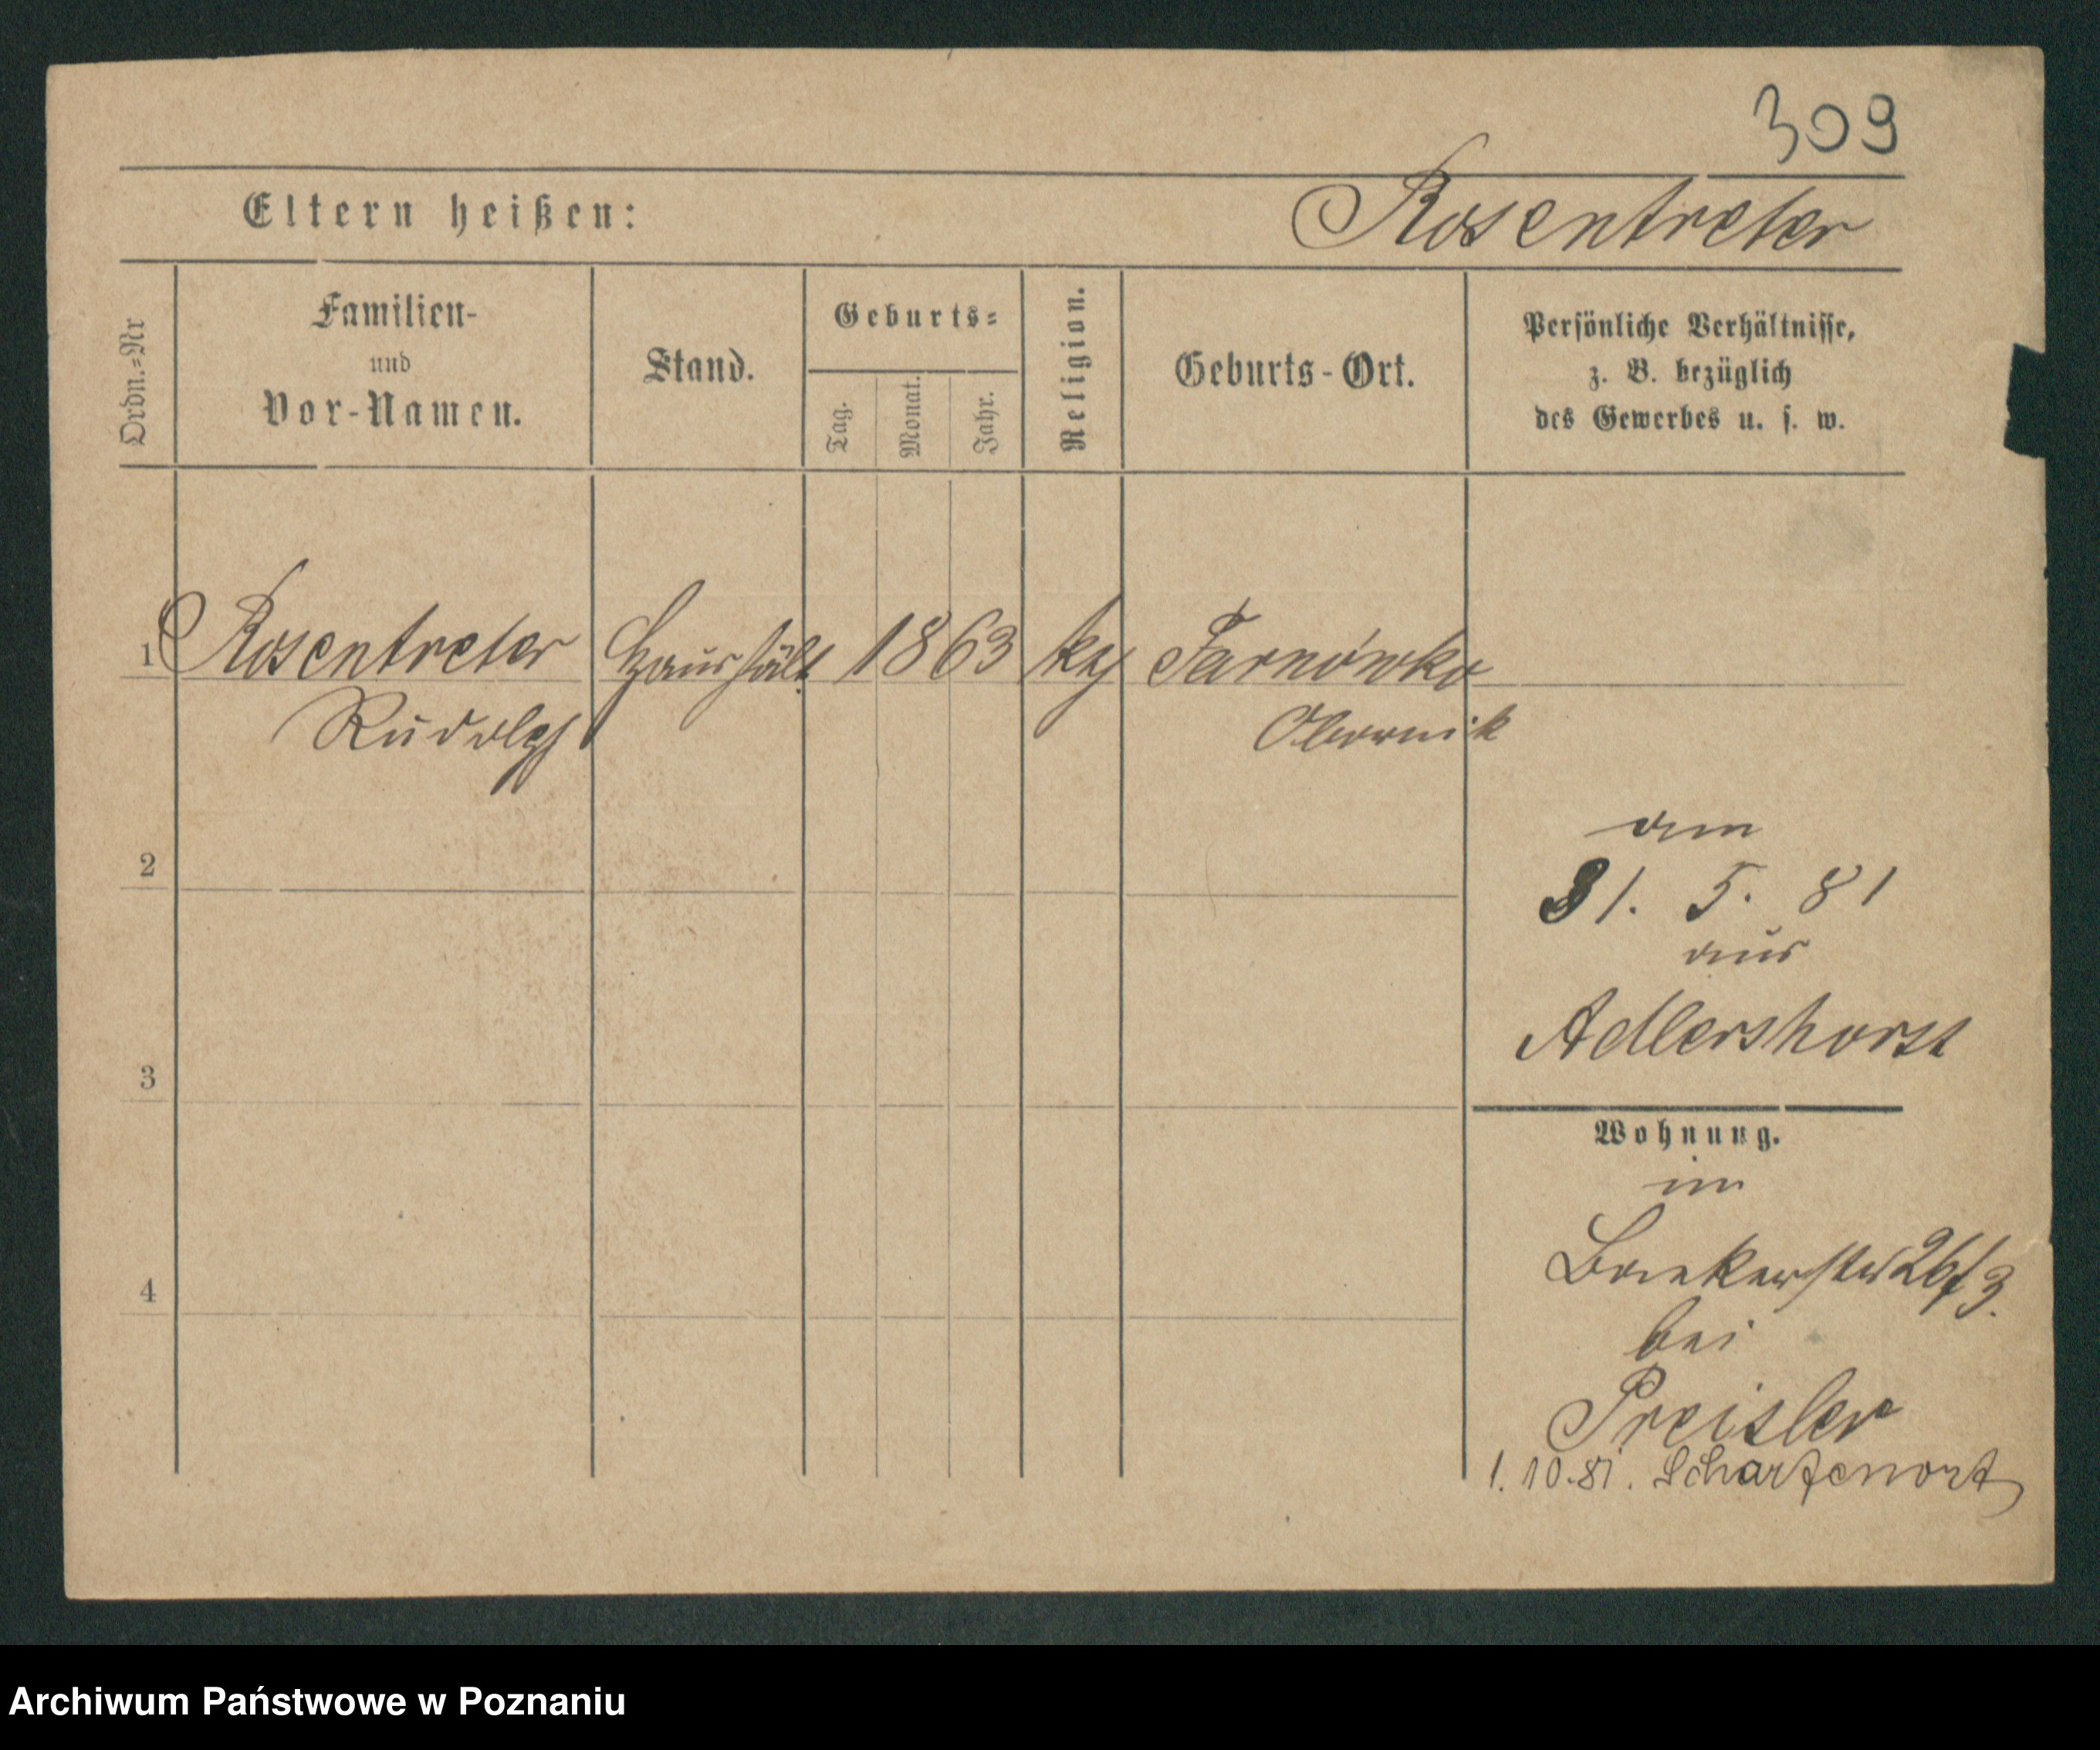 309
Eltern heißen: Rosentreter
Ordn.=Nr
Familien-
und
Vor-Namen.
Stand.
Geburts=
Tag.
Monat.
Jahr.
Religion.
Geburts-Ort.
Persönliche Verhältnisse,
z. B. bezüglich
des Gewerbes u. s. w.
1 Rosentreter Haushält. 1863 Tarnówko
Rudolph Obornik
2
am
31. 5. 81
aus
Adlershorst
3
Wohnung.
im
26/3.
4
bei
Preisler
1. 10. 81. Scharfenort
Archiwum Państwowe w Poznaniu